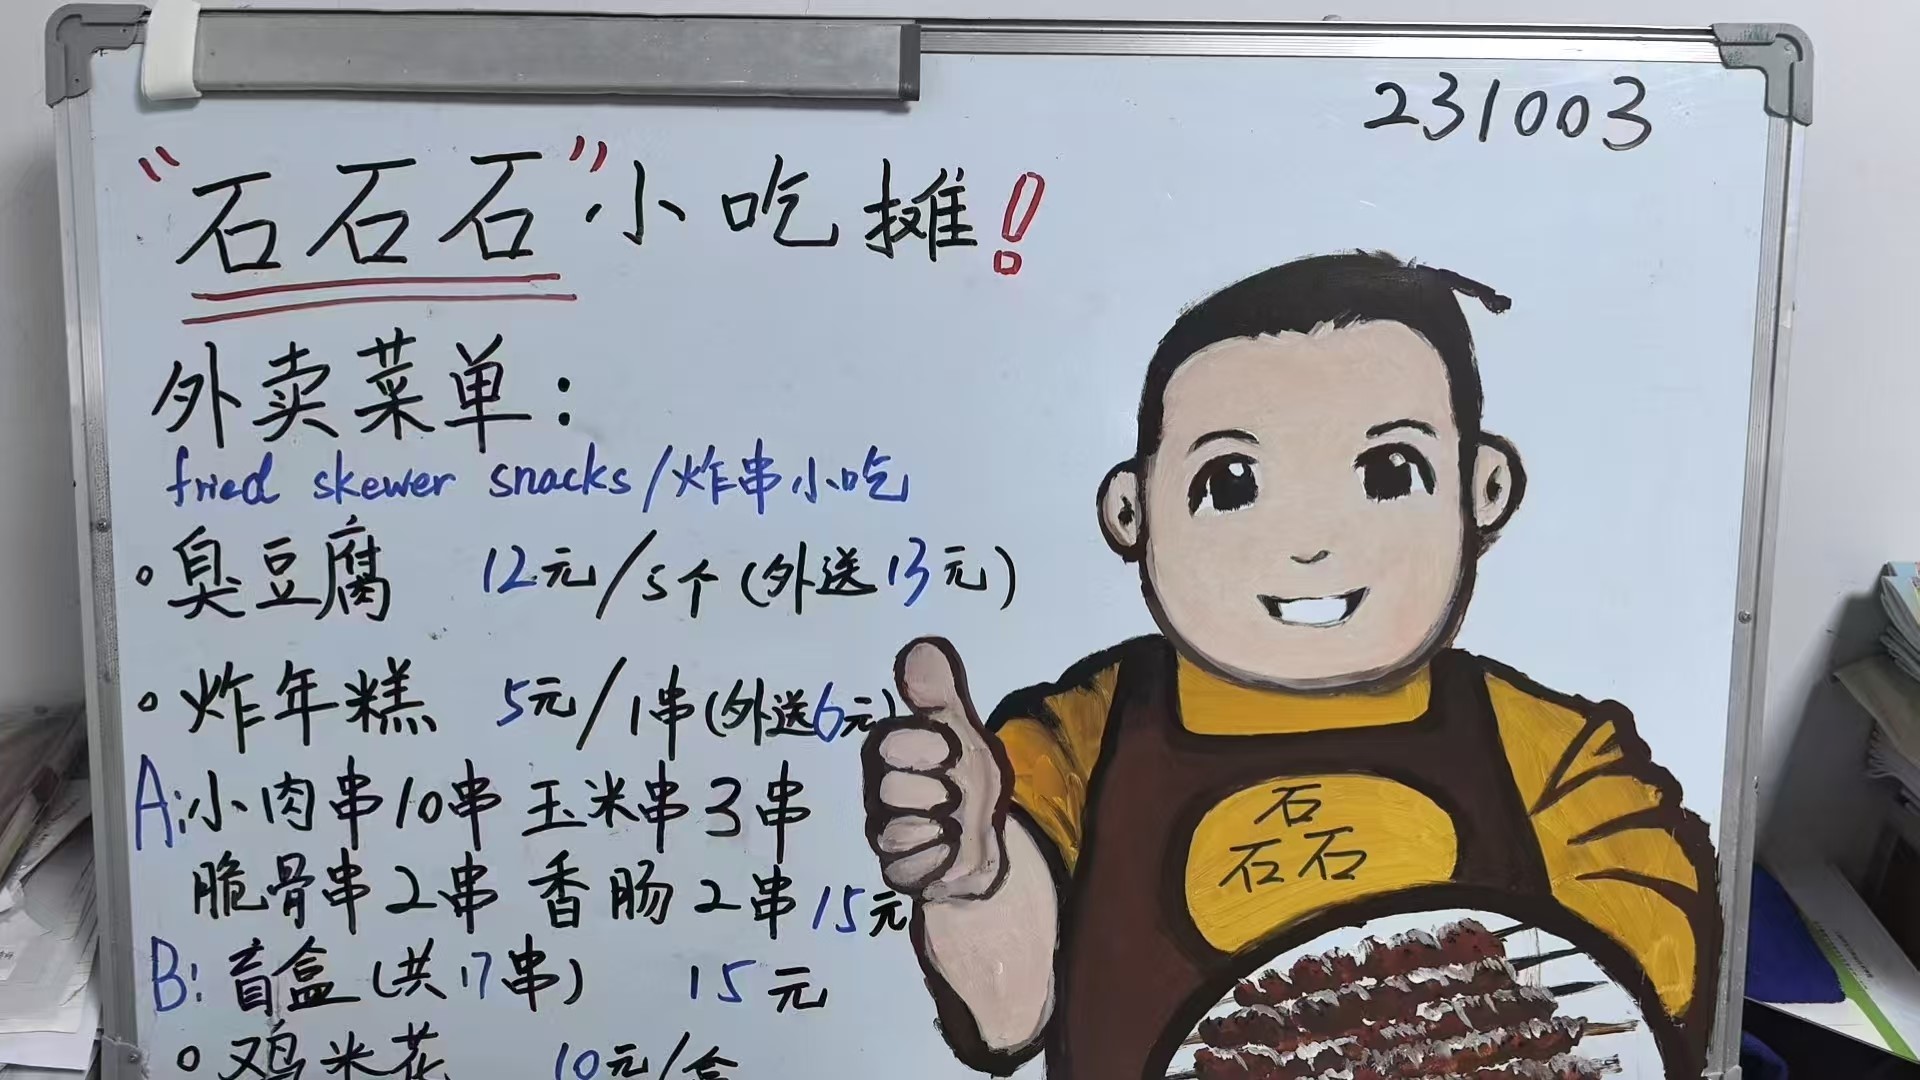 231003
“石石石”小吃摊!
外卖菜单:
fried skewer snacks/炸串小吃
臭豆腐 12元/5个(外送13元)
炸年糕 5元/1串(外送6元)
A:小肉串10串 玉米串3串
脆骨串2串 香肠2串 15元
B:盲盒(共17串) 15元
鸡米花 10元/盒
石
石石